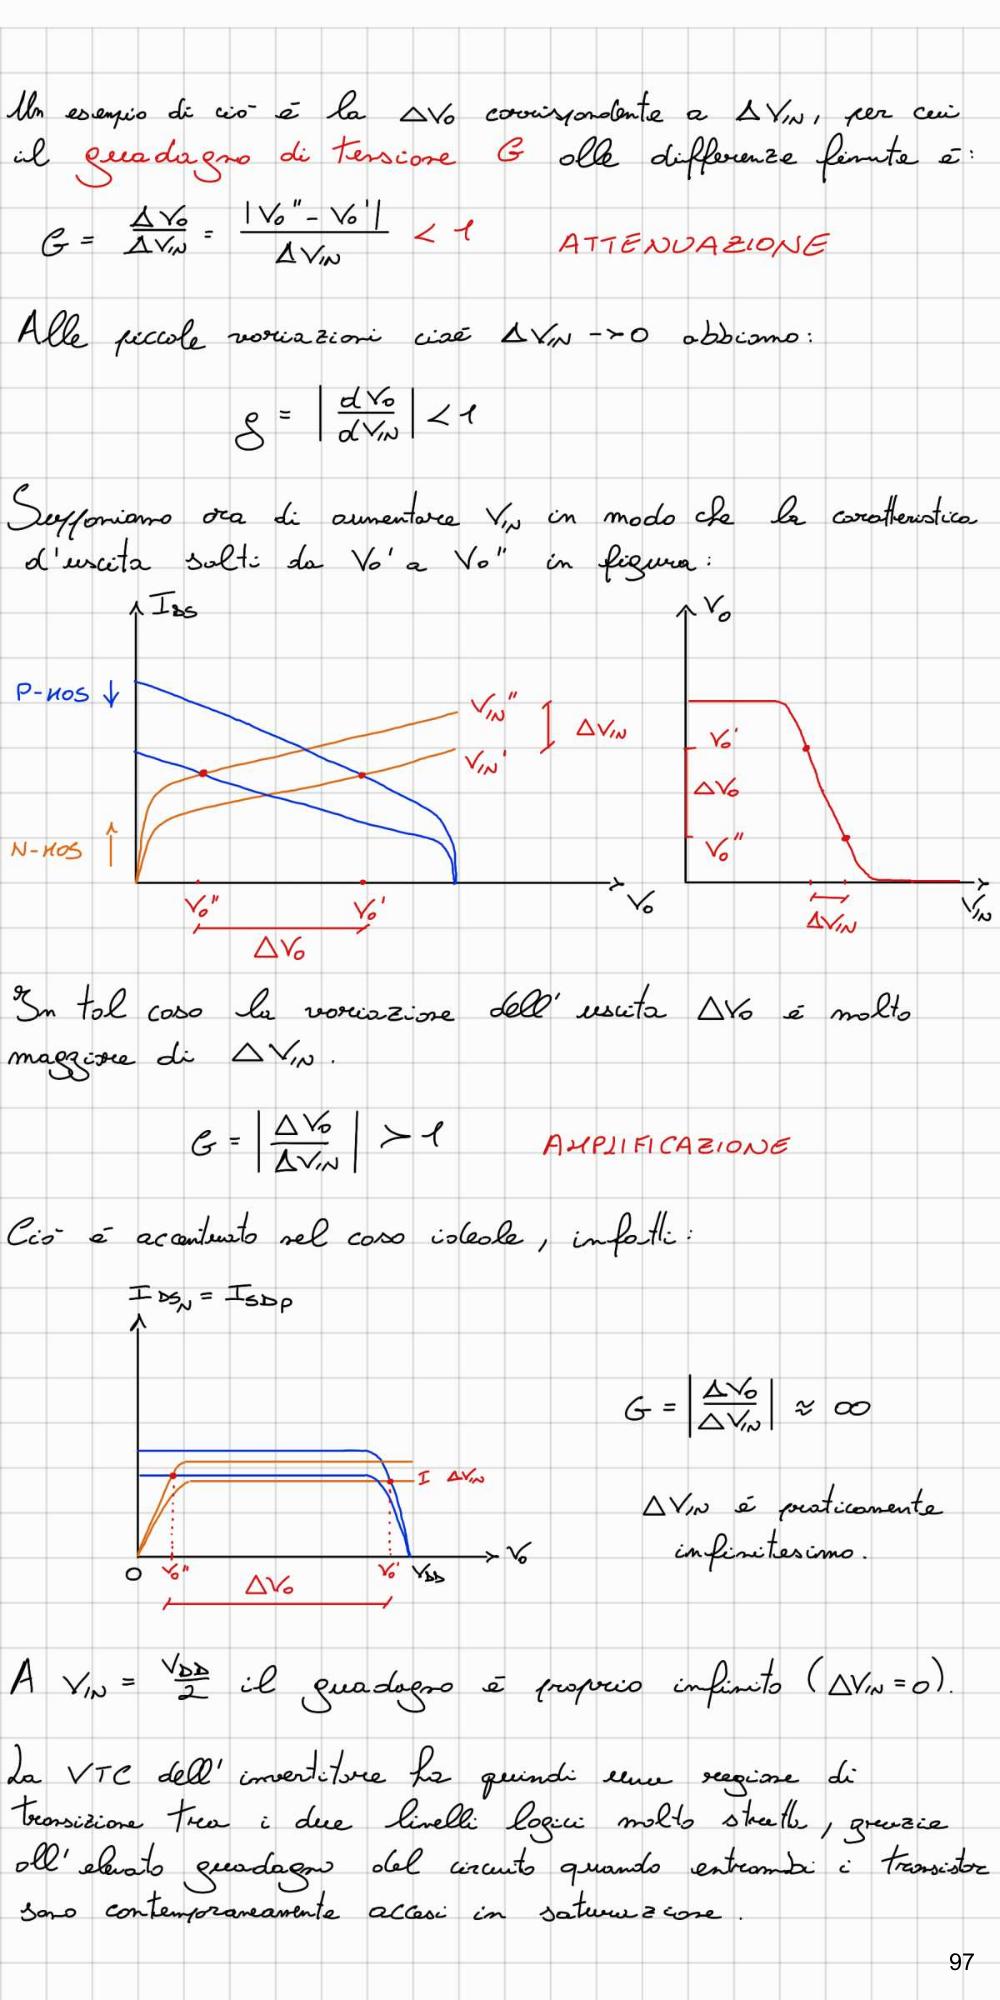 Un esempio di ciò è la ΔVo corrispondente a ΔVIN, per cui
il guadagno di tensione G alle differenze finite è:
G = ΔVo/ΔVIN = |Vo'' - Vo'|/ΔVIN < 1 ATTENUAZIONE
Alle piccole variazioni cioè ΔVIN -> 0 abbiamo:
g = |dVo/dVIN| < 1
Supponiamo ora di aumentare VIN in modo che la caratteristica
d'uscita salti da Vo' a Vo'' in figura:
IDS
Vo
P-MOS ↓
VIN''
ΔVIN
VIN'
N-MOS ↑
Vo'' Vo' Vo
ΔVo
Vo'
ΔVo
Vo''
ΔVIN
VIN
In tal caso la variazione dell'uscita ΔVo è molto
maggiore di ΔVIN.
G = |ΔVo/ΔVIN| > 1 AMPLIFICAZIONE
Ciò è accentuato nel caso ideale, infatti:
IDSN = ISDP
G = |ΔVo/ΔVIN| ≈ ∞
I ΔVIN
ΔVIN è praticamente
infinitesimo.
O Vo'' Vo' VDD Vo
ΔVo
A VIN = VDD/2 il guadagno è proprio infinito (ΔVIN = 0).
La VTC dell'invertitore ha quindi una regione di
transizione tra i due livelli logici molto stretta, grazie
all'elevato guadagno del circuito quando entrambi i transistor
sono contemporaneamente accesi in saturazione.
97